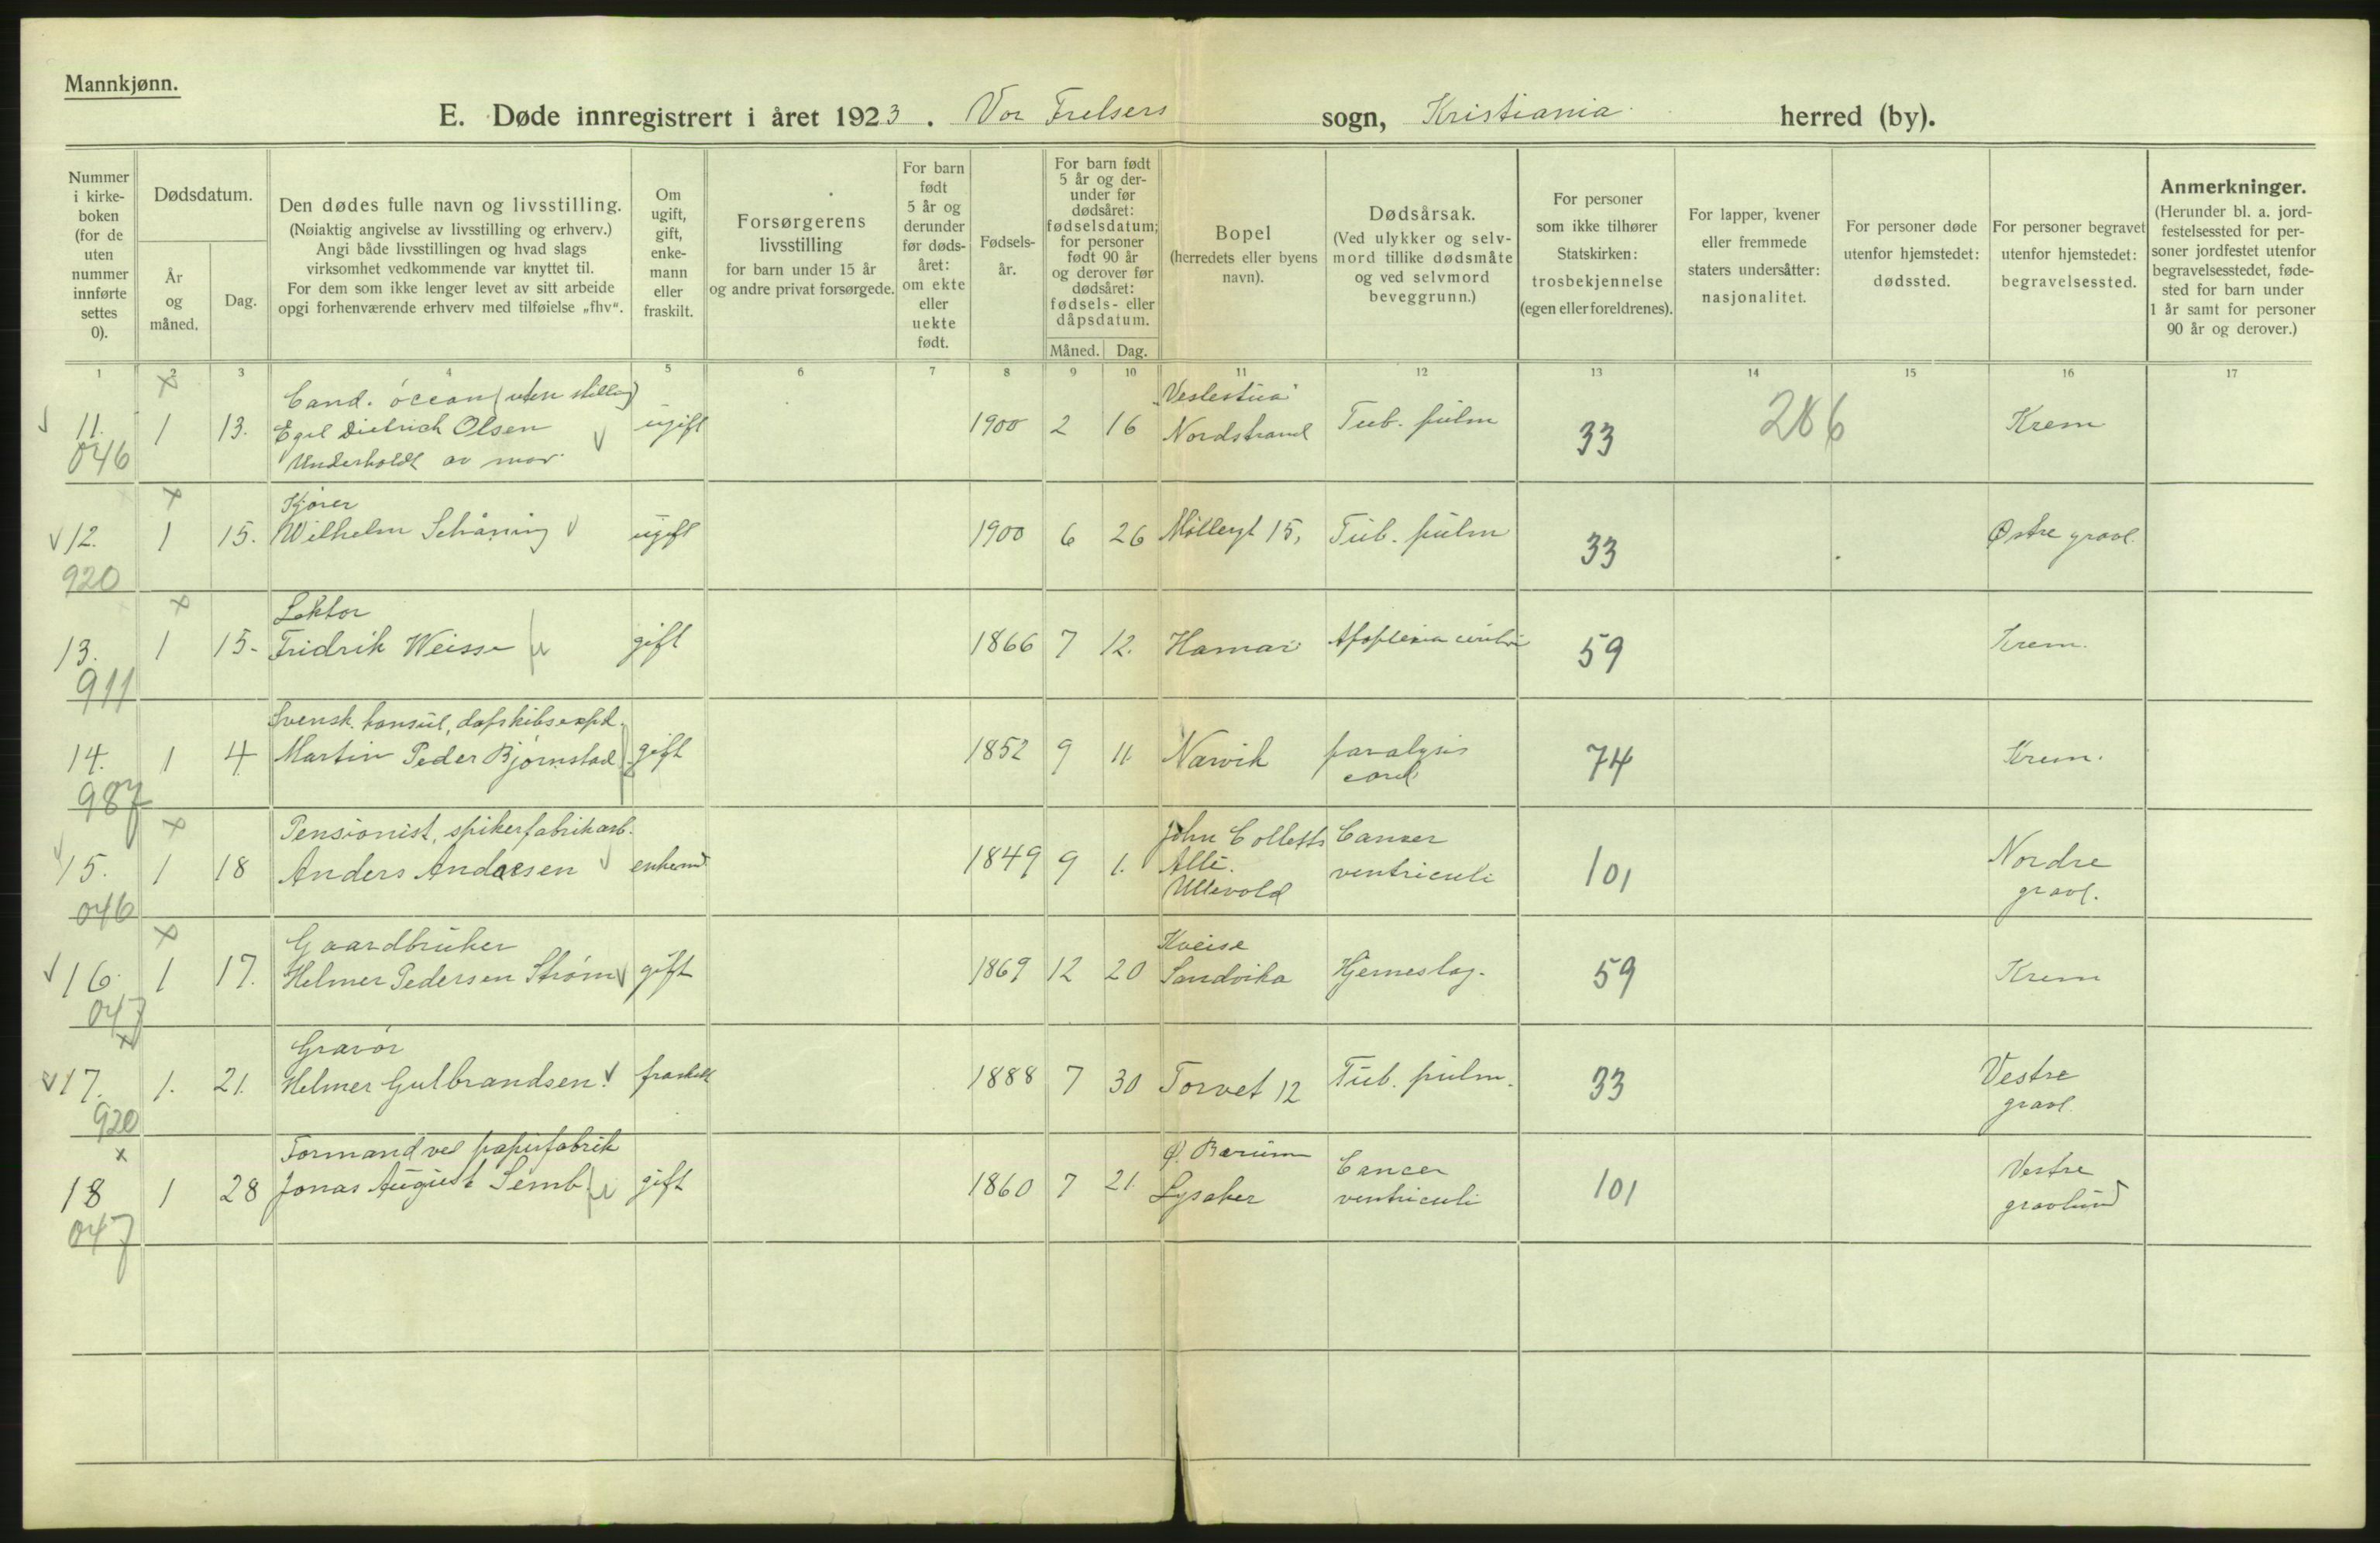 Mannkjønn.
E. Døde innregistrert i året 1923. Vor Frelsers sogn, Kristiania herred (by).
Nummer i kirke-boken (for de uten nummer innførte settes 0).
Dødsdatum.
År og måned.
Dag.
Den dødes fulle navn og livsstilling.
(Nøiaktig angivelse av livsstilling og erhverv.)
Angi både livsstillingen og hvad slags
virksomhet vedkommende var knyttet til.
For dem som ikke lenger levet av sitt arbeide
opgi forhenværende erhverv med tilføielse „fhv“.
Om ugift, gift, enke-mann eller fraskilt.
Forsørgerens livsstilling
for barn under 15 år
og andre privat forsørgede.
For barn født 5 år og derunder før døds-året: om ekte eller uekte født.
Fødsels-år.
For barn født 5 år og der-under før dødsåret: fødselsdatum; for personer født 90 år og derover før dødsåret: fødsels- eller dåpsdatum.
Måned. Dag.
Bopel
(herredets eller byens navn).
Dødsårsak.
(Ved ulykker og selv-mord tillike dødsmåte og ved selvmord beveggrunn.)
For personer som ikke tilhører Statskirken: trosbekjennelse (egen eller foreldrenes).
For lapper, kvener eller fremmede staters undersåtter: nasjonalitet.
For personer døde utenfor hjemstedet: dødssted.
For personer begravet utenfor hjemstedet: begravelsessted.
Anmerkninger.
(Herunder bl. a. jord-festelsessted for per-soner jordfestet utenfor begravelsesstedet, føde-sted for barn under 1 år samt for personer 90 år og derover.)
1 2 3 4 5 6 7 8 9 10 11 12 13 14 15 16 17
Cand. oecon (uten stilling) Veslestua
11. 1 13. Egil Dietrich Olsen ugift 1900 2 16 Nordstrand Tub. pulm 33 286 Krem
046 Underholdt av mor
Kjører
12. 1 15. Wilhelm Schåning ugift 1900 6 26 Møllergt 15, Tub. pulm 33 Østre gravl.
920
Lektor
13. 1 15. Fridrik Weisse gift 1866 7 12. Hamar Apoplexia cerebri 59 Krem.
911
Svensk. konsul, dapskibsexpd.
14. 1 4 Martin Peder Bjørnstad gift 1852 9 11 Narvik paralysis cord 74 Krem.
987
Pensionist, spikerfabrikarb. John Colletts Cancer
15. 1 18 Anders Andersen enkem 1849 9 1. Allé. Ullevold ventriculi 101 Nordre gravl.
046
Gaardbruker
16. 1 17. Helmer Pedersen Strøm gift 1869 12 20 Sandvika Hjerneslag. 59 Krem
047
Gravør
17. 1. 21. Helmer Gulbrandsen fraskilt 1888 7 30 Torvet 12 Tub. pulm. 33 Vestre gravl.
920
Formand ved papirfabrik Ø. Bærum Cancer Vestre
18 1 28 Jonas August Semb. gift 1860 7 21 Lysaker ventriculi 101 gravlund
047